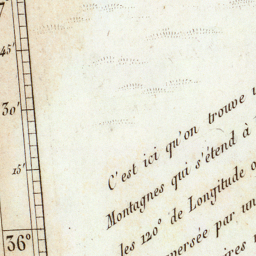 45'
30'
15'
36°
C'est ici qu'on trouve
Montagnes qui s'étend à
les 120° de Longitude
par